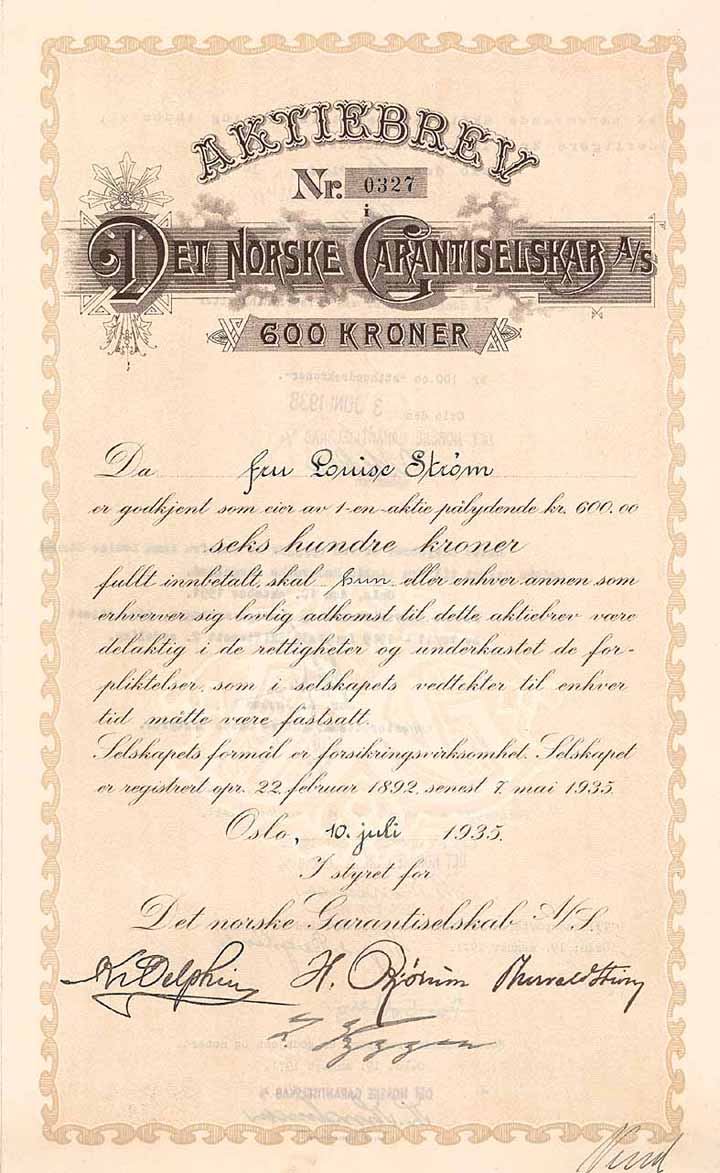 AKTIEBREV
Nr. 0327
i
DET NORSKE GARANTISELSKAB A/S
600 KRONER
kr 100.00
3 JUNI 1938
Oslo den
Da fru Louise Strøm
er godkjent som eier av 1-en-aktie pålydende kr. 600.00
seks hundre kroner
fullt innbetalt, skal hun eller enhver annen som
erhverver sig lovlig adkomst til dette aktiebrev være
delaktig i de rettigheter og underkastet de for-
pliktelser, som i selskapets vedtekter til enhver
tid måtte være fastsatt.
Selskapets formål er forsikringsvirksomhet. Selskapet
er registrert opr. 22. februar 1892, senest 7. mai 1935.
Oslo, 10. juli 1935.
I styret for
Det norske Garantiselskab A/S.
Kr Delphin H. Bjørum Thorvald Strøm